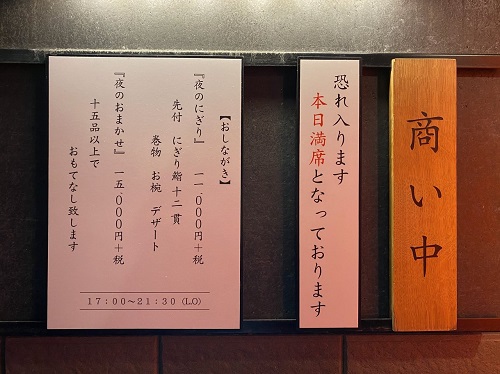 商い中
恐れ入ります
本日満席となっております
【おしながき】
『夜のにぎり』 一一.〇〇〇円+税
先付 にぎり鮨十二貫
巻物 お椀 デザート
『夜のおまかせ』 一五.〇〇〇円+税
十五品以上で
おもてなし致します
17:00~21:30(L.O)